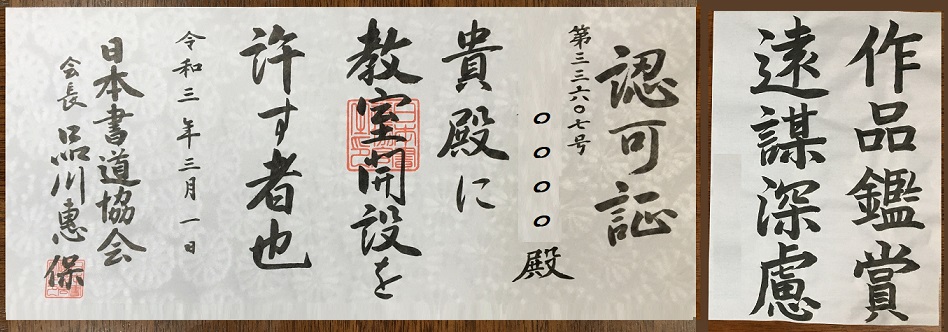 認可証
第三三六〇七号
〇〇〇〇殿
貴殿に
教室開設を
許す者也
令和三年三月一日
日本書道協会
会長 品川惠保
作品鑑賞
遠謀深慮